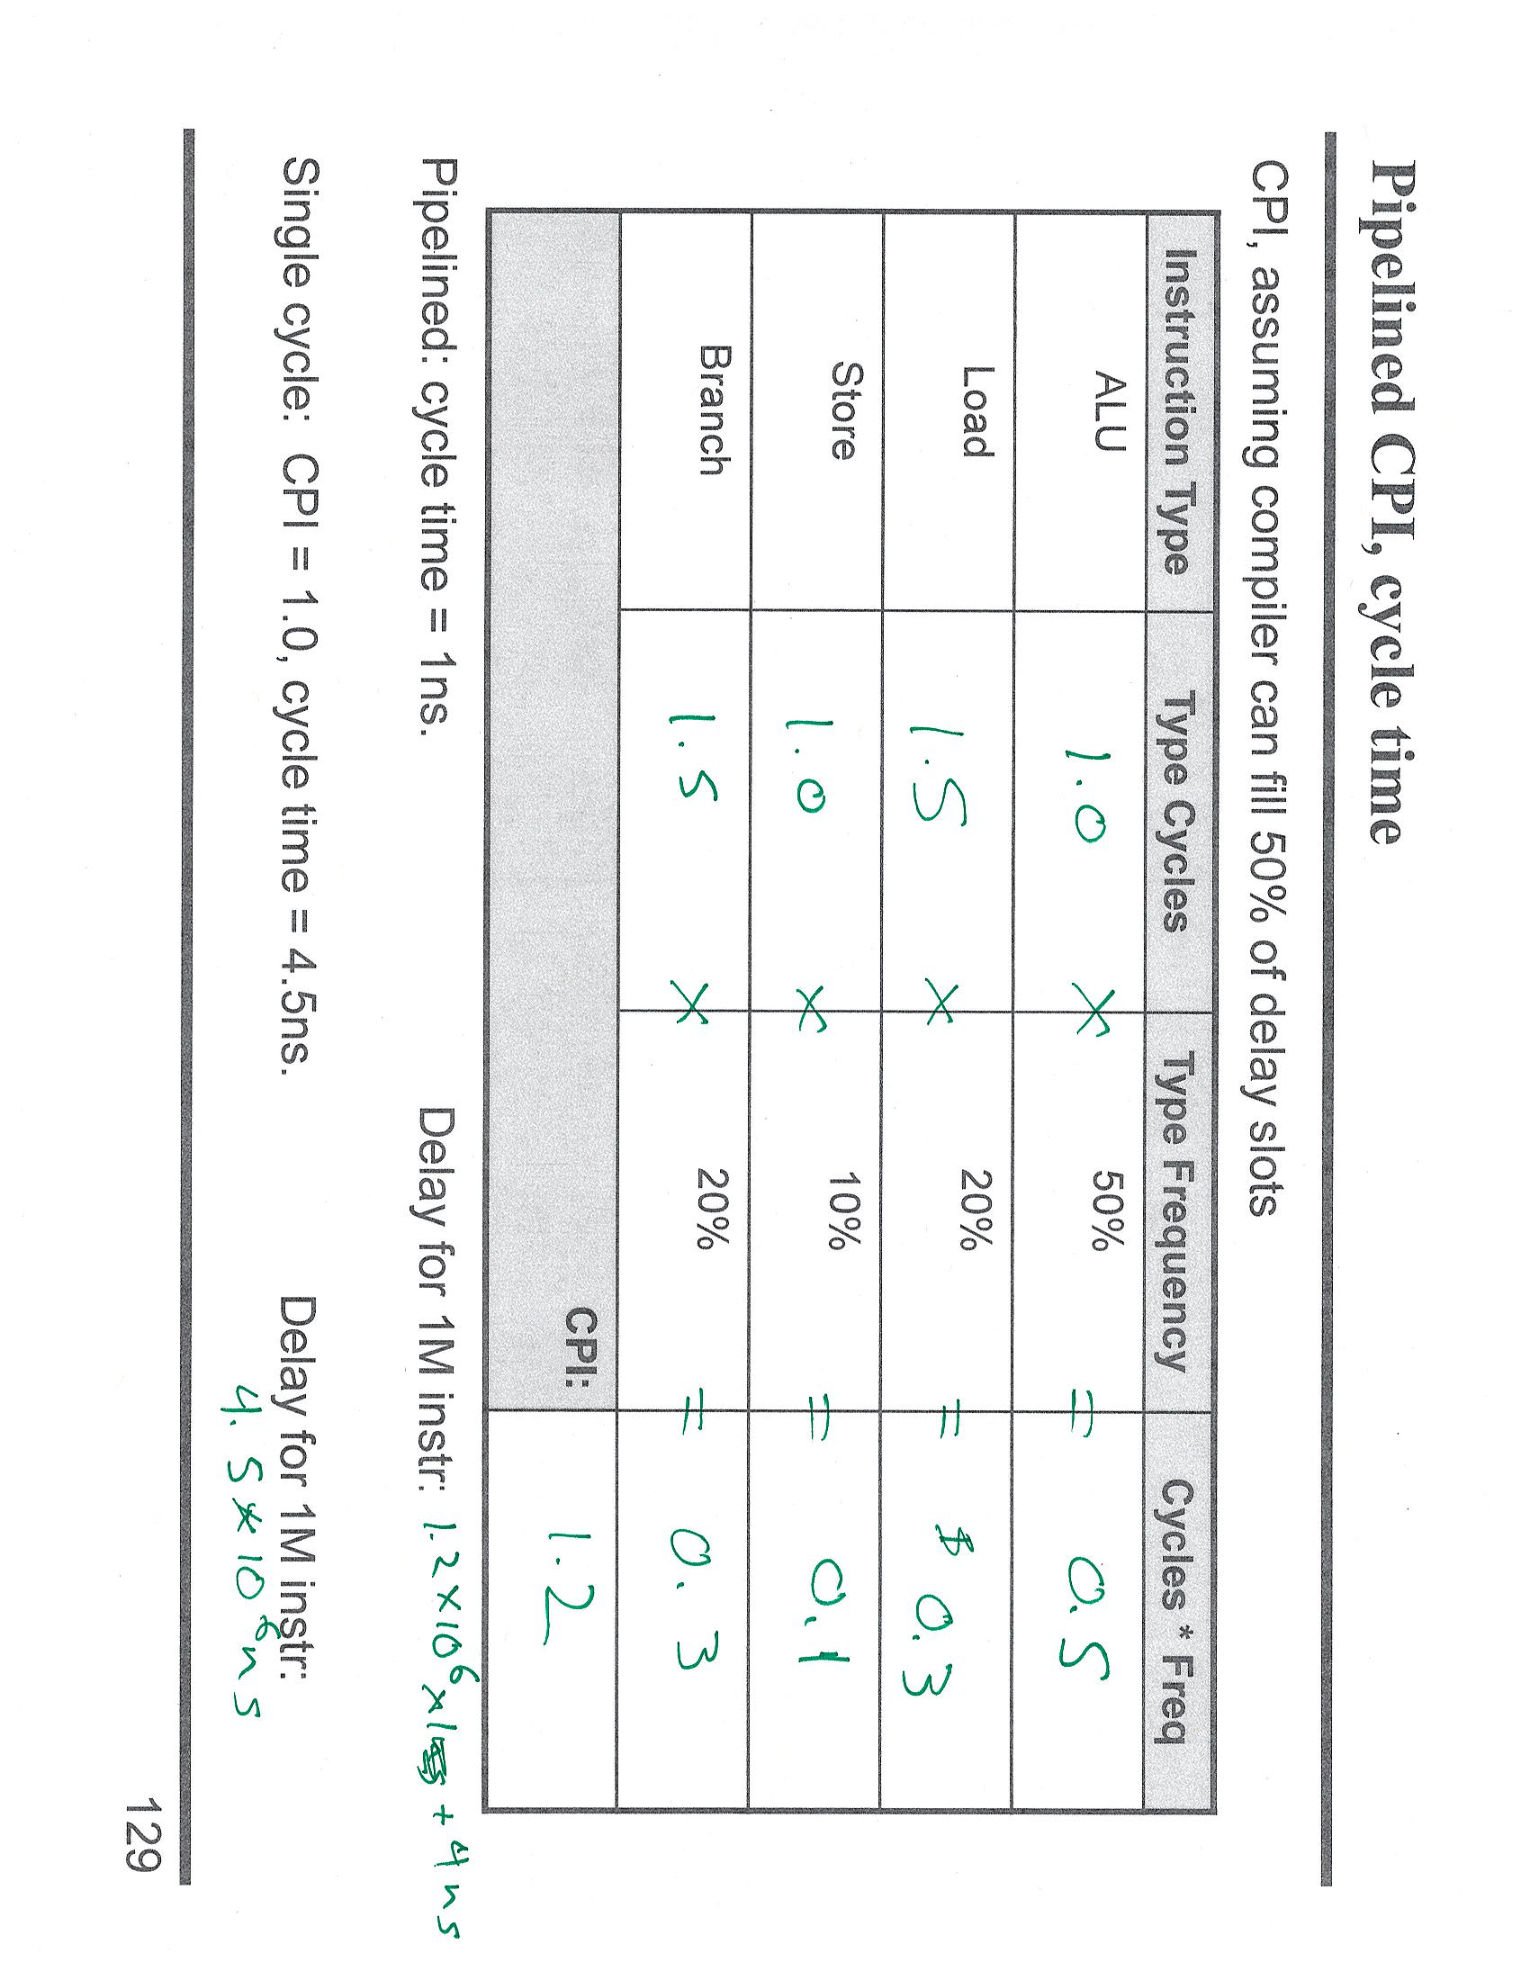 Pipelined CPI, cycle time
CPI, assuming compiler can fill 50% of delay slots
Instruction Type Type Cycles Type Frequency Cycles * Freq
ALU 1.0 × 50% = 0.5
Load 1.5 × 20% = 0.3
Store 1.0 × 10% = 0.1
Branch 1.5 × 20% = 0.3
CPI: 1.2
Pipelined: cycle time = 1ns. Delay for 1M instr: 1.2×10⁶×1 + 4ns
Single cycle: CPI = 1.0, cycle time = 4.5ns. Delay for 1M instr:
4.5*10⁶ns
129